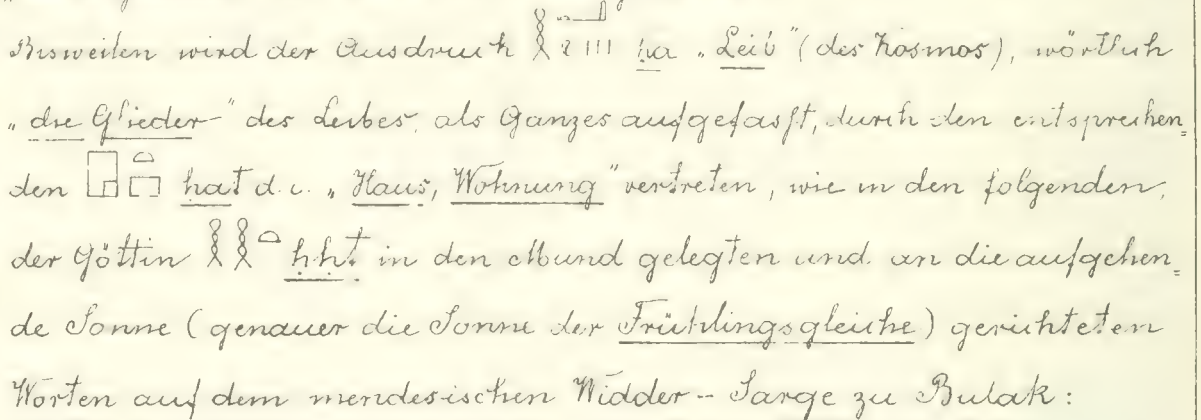 Bisweilen wird der Ausdruck 𓎛𓂝𓏲𓏥 ḥa „Leib" (des Kosmos), wörtlich
„die Glieder" des Leibes, als Ganzes aufgefasst, durch den entsprechen=
den 𓉗𓏏𓉐 ḥat d. i. „Haus, Wohnung" vertreten, wie in den folgenden,
der Göttin 𓎛𓎛𓏏 ḥḥt in den Mund gelegten und an die aufgehen=
de Sonne (genauer die Sonne der Frühlingsgleiche) gerichteten
Worten auf dem mendesischen Widder-Sarge zu Bulak: